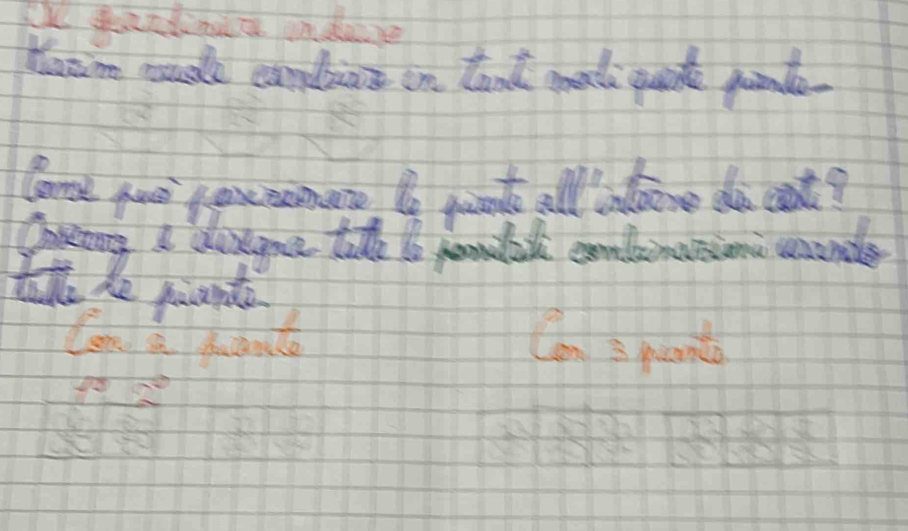 Il giardiniere indeciso
Karim vuole cambiare in tanti modi queste piante
Come può posizionare le piante all'interno dei vasi?
Osserva e disegna tutte le possibili combinazioni usando
tutte le piante.
Con 2 piante Con 3 piante
1° 2°